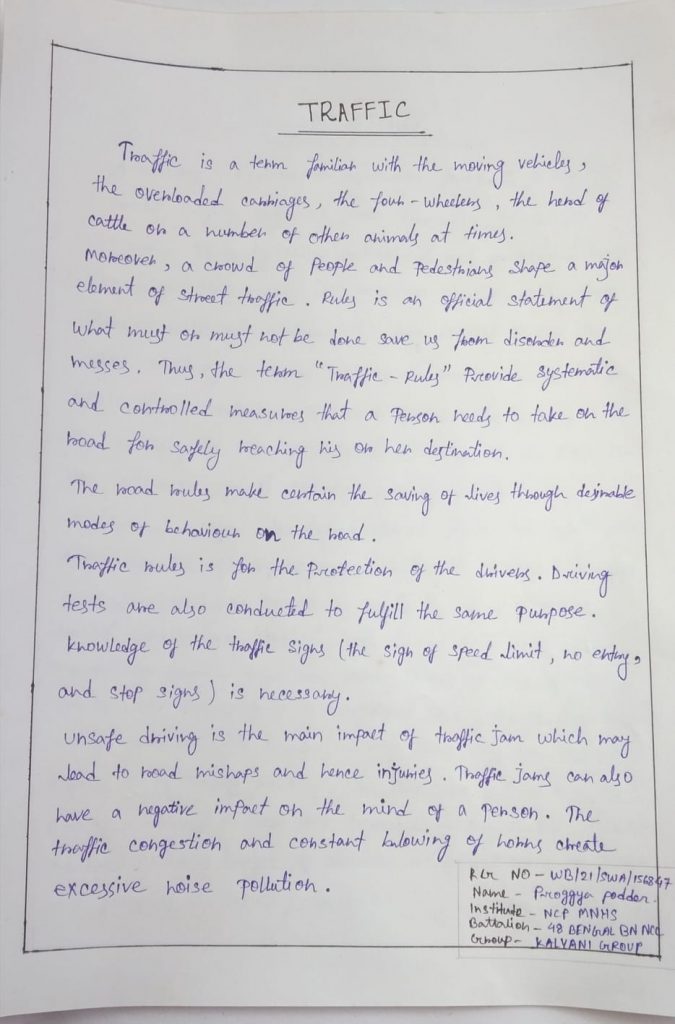 TRAFFIC
Traffic is a term familiar with the moving vehicles,
the overloaded carriages, the four-wheelers, the herd of
cattle or a number of other animals at times.
Moreover, a crowd of People and Pedestrians shape a major
element of street traffic. Rules is an official statement of
what must or must not be done save us from disorder and
messes. Thus, the term "Traffic-Rules" Provide systematic
and controlled measures that a Person needs to take on the
road for safely reaching his or her destination.
The road rules make certain the saving of lives through desirable
modes of behaviour on the road.
Traffic rules is for the Protection of the drivers. Driving
tests are also conducted to fulfill the same purpose.
Knowledge of the traffic signs (the sign of speed limit, no entry,
and stop signs) is necessary.
Unsafe driving is the main impact of traffic jam which may
lead to road mishaps and hence injuries. Traffic jams can also
have a negative impact on the mind of a person. The
traffic congestion and constant blowing of horns create
excessive noise pollution.
NO - WB/21/SWA/156847
Name - Proggya podder.
Institute - NCP MNHS
Battalion - 48 BENGAL BN NCC
Group - KALYANI GROUP